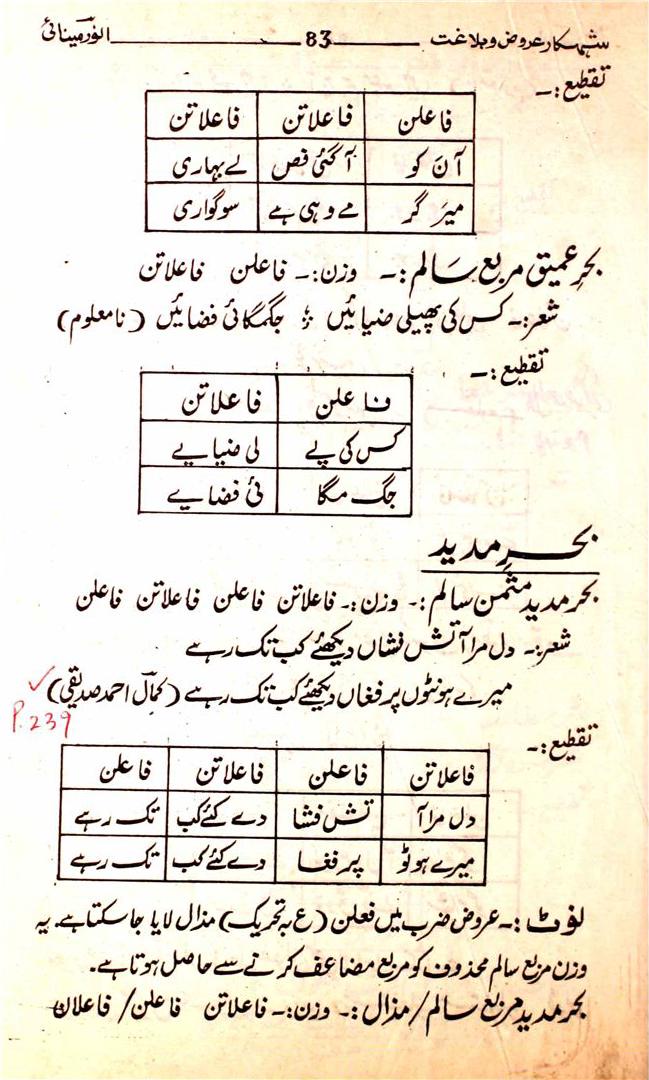 شہکار عروض و بلاغت ــــــ 83 ــــــ انور مینائی
تقطیع :۔
فاعلن فاعلاتن فاعلاتن
آن کو آ گئی فص لے بہاری
میر گر مے وہی ہے سوگواری
بحرِ عمیق مربع سالم :۔ وزن :۔ فاعلن فاعلاتن
شعر :۔ کس کی پھیلی ضیائیں ؛ جگمگائی فضائیں (نامعلوم)
تقطیع :۔
فاعلن فاعلاتن
کس کی پے لی ضیایے
جگ مگا ئی فضایے
بحرِ مدید
بحر مدید مثمن سالم :۔ وزن :۔ فاعلاتن فاعلن فاعلاتن فاعلن
شعر :۔ دل مرا آتش فشاں دیکھئے کب تک رہے
میرے ہونٹوں پر فغاں دیکھئے کب تک رہے (کمال احمد صدیقی) ✓
P.239
تقطیع :۔
فاعلاتن فاعلن فاعلاتن فاعلن
دل مرا آ تش فشا دے کئے کب تک رہے
میرے ہوٹو پر فغا دے کئے کب تک رہے
نوٹ :۔ عروض ضرب میں فعلن (ع بہ تحریک) مذال لایا جا سکتا ہے۔ یہ
وزن مربع سالم محذوف کو مربع مضاعف کرنے سے حاصل ہوتا ہے۔
بحر مدید مربع سالم / مذال :۔ وزن :۔ فاعلاتن فاعلن / فاعلان